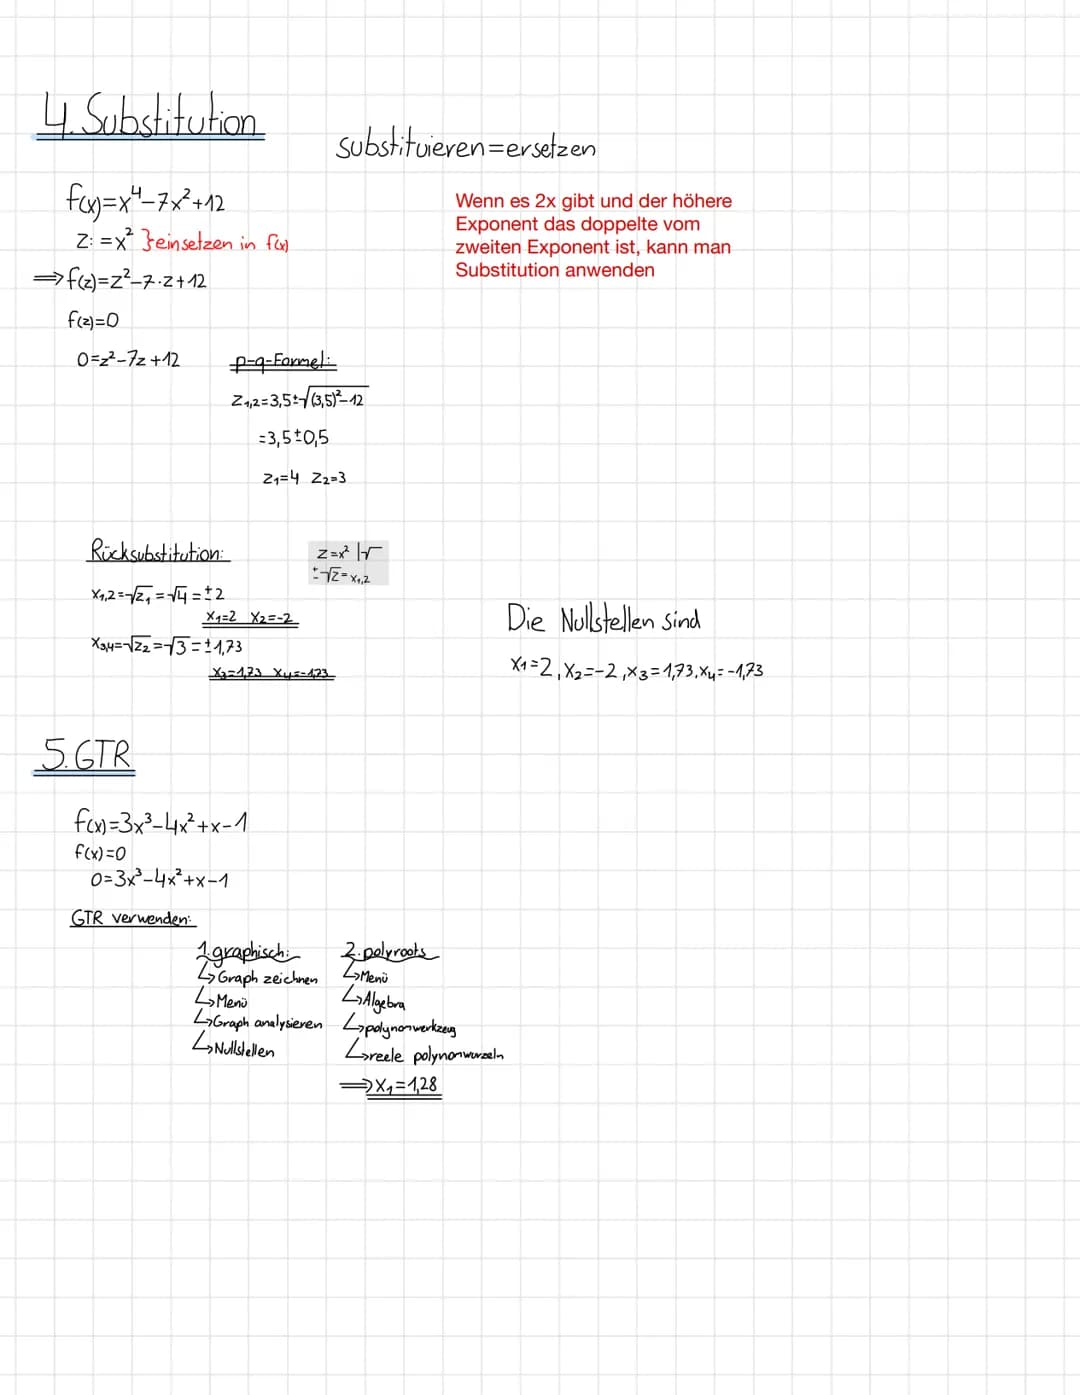 4. Substitution
substituieren=ersetzen
f(x)=x⁴-7x²+12
z:=x² }einsetzen in f(x)
⇒f(z)=z²-7·z+12
f(z)=0
0=z²-7z+12
Wenn es 2x gibt und der höhere
Exponent das doppelte vom
zweiten Exponent ist, kann man
Substitution anwenden
p-q-Formel:
z₁,₂=3,5±√(3,5)²-12
=3,5±0,5
z₁=4 z₂=3
Rücksubstitution:
z=x² |√
±√z=x₁,₂
x₁,₂=√z₁=√4=±2
x₁=2 x₂=-2
x₃,₄=√z₂=√3=±1,73
x₃=1,73 x₄=-1,73
Die Nullstellen sind
x₁=2,x₂=-2,x₃=1,73,x₄=-1,73
5.GTR
f(x)=3x³-4x²+x-1
f(x)=0
0=3x³-4x²+x-1
GTR verwenden:
1.graphisch:
↳Graph zeichnen
↳Menü
↳Graph analysieren
↳Nullstellen
2.polyroots
↳Menü
↳Algebra
↳polynomwerkzeug
↳reele polynomwurzeln
⇒x₁=1,28